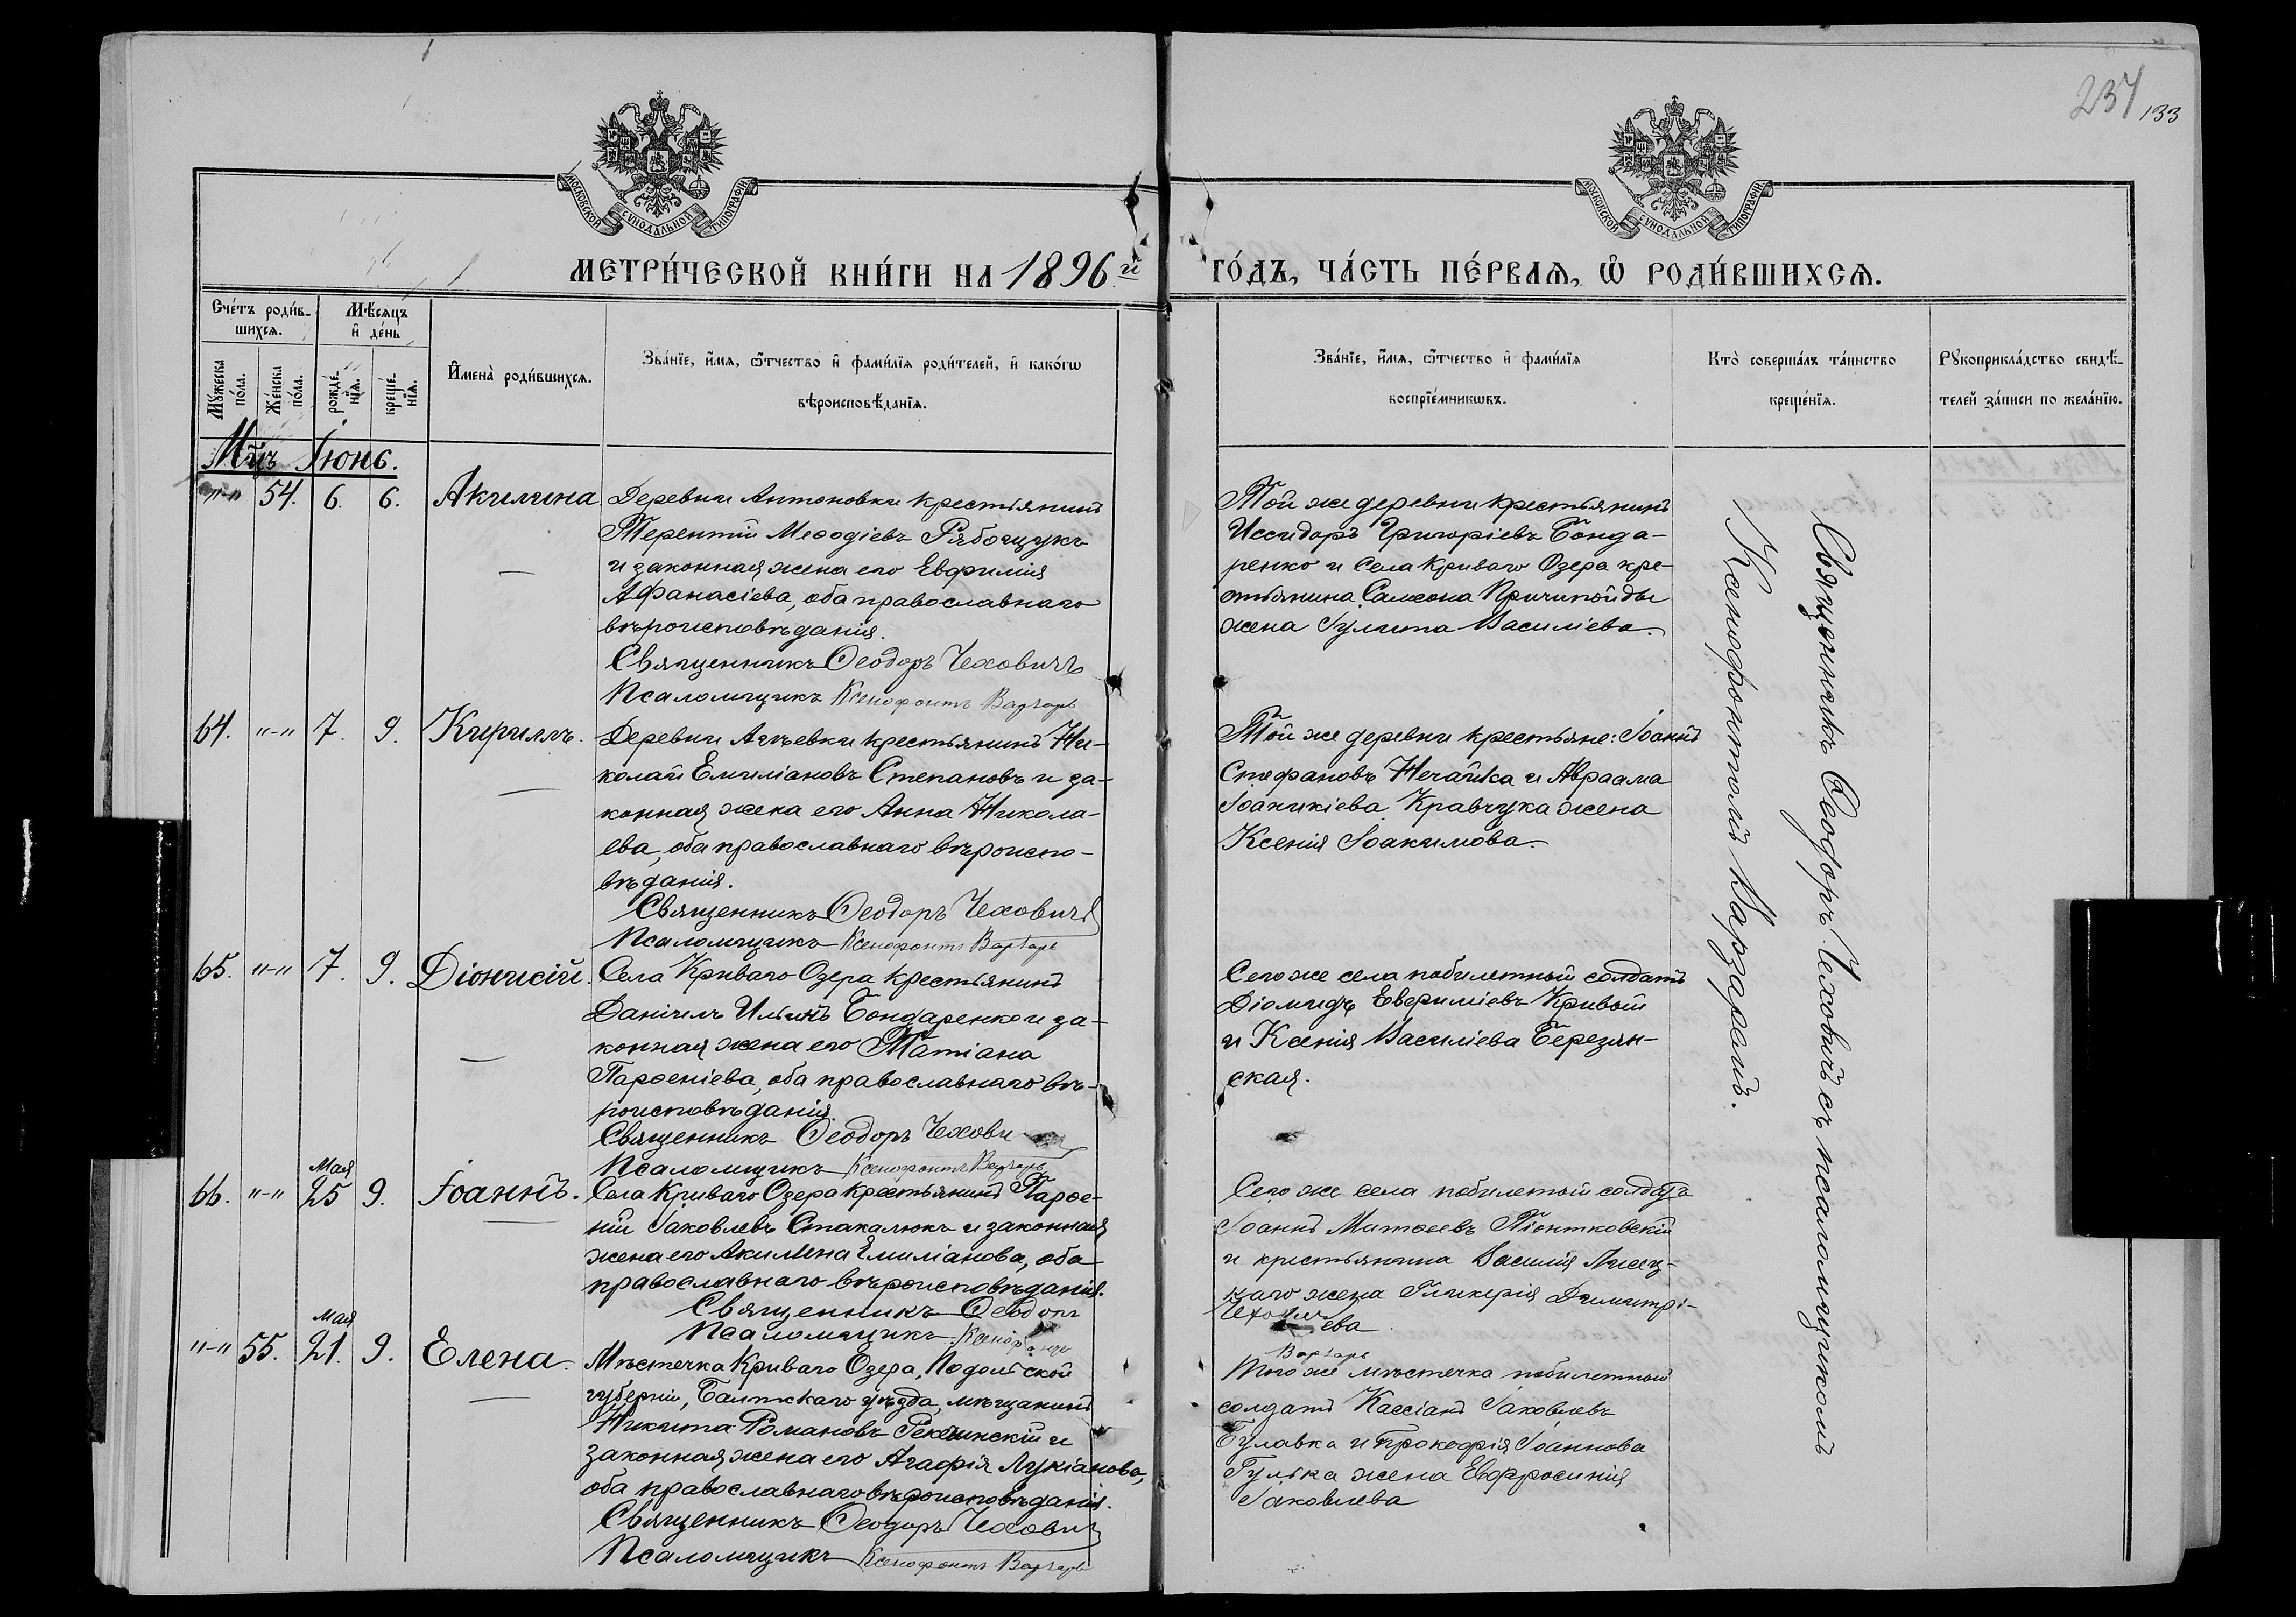 237 133
МОСКОВСКОЙ СѴНОДАЛЬНОЙ ТИПОГРАФІИ
МОСКОВСКОЙ СѴНОДАЛЬНОЙ ТИПОГРАФІИ
МЕТРИ́ЧЕСКОЙ КНИ́ГИ НА 1896й
ГО́ДЪ, ЧА́СТЬ ПЕ́РВАѦ, Ѡ҆ РОДИ́ВШИХСѦ.
Сче́тъ роди́в-
шихсѧ.
Мѣ́сѧцъ
и҆ де́нь
Мꙋ́жеска
по́ла.
Же́нска
по́ла.
рожде́-
нїѧ.
креще́-
нїѧ.
И҆мена̀ роди́вшихсѧ.
Зва́нїе, и҆́мѧ, ѻ҆́тчество и҆ фами́лїѧ роди́телей, и҆ како́гѡ
вѣроисповѣ́данїѧ.
Зва́нїе, и҆́мѧ, ѻ҆́тчество и҆ фами́лїѧ
воспрїе́мникѡвъ.
Кто̀ соверша́лъ та́инство
креще́нїѧ.
Рꙋкоприкла́дство свидѣ́-
телей за́писи по жела́нїю.
Мцъ Іюнь.
"-" 54. 6. 6. Акилина
Деревни Антоновки крестьянинъ
Терентій Меѳодіевъ Рябощукъ
и законная жена его Евфимія
Афанасіева, оба православнаго
вѣроисповѣданія.
Священникъ Ѳеодоръ Чеховичъ
Псаломщикъ Ксенофонтъ Варзарь
Той же деревни крестьянинъ
Иссидоръ Григоріевъ Бонда-
ренко и села Криваго Озера кре-
стьянина Самсона
жена Іулита Василіева.
64. "-" 7. 9. Кириллъ.
Деревни крестьянинъ Ни-
колай Емиліановъ Степановъ и за-
конная жена его Анна Никола-
ева, оба православнаго вѣроиспо-
вѣданія.
Священникъ Ѳеодоръ Чеховичъ
Псаломщикъ Ксенофонтъ Варзарь
Той же деревни крестьяне: Іоаннъ
Стефановъ Нечайка и Авраама
Іоаникіева Кравчука жена
Ксенія Іоакимова.
65. "-" 7. 9. Діонисій.
Села Криваго Озера крестьянинъ
Даніилъ Ильинъ Бондаренко и за-
конная жена его Татіана
Парѳеніева, оба православнаго вѣ-
роисповѣданія.
Священникъ Ѳеодоръ Чехови
Псаломщикъ Ксенофонтъ Варзарь
Сего же села побилетный солдатъ
Діомидъ Евфиміевъ Кривый
и Ксенія Василіева Березян-
ская.
Мая
66. "-" 25 9. Іоаннъ.
Села Криваго Озера крестьянинъ Парѳе-
ній Іаковлевъ Стакалюкъ и законная
жена его Акилина Емиліанова, оба
православнаго вѣроисповѣданія.
Священникъ Ѳеодоръ
Псаломщикъ
Сего же села побилетный солдатъ
Іоаннъ Матѳеевъ Піонтковскій
и крестьянина Василія Лисец-
каго жена Гликерія Димитрі-
ева.
Варзарь
Мая
"-" 55. 21. 9. Елена.
Мѣстечка Криваго Озера, Подольской
губерніи, Балтскаго уѣзда, мѣщанинъ
Никита Романовъ и
законная жена его Агафія Лукіанова,
оба православнаго вѣроисповѣданія.
Священникъ Ѳеодоръ Чеховичъ
Псаломщикъ Ксенофонтъ Варзарь
Того же мѣстечка побилетный
солдатъ Кассіанъ Іаковлевъ
Булавка и Прокофія Іоаннова
Гулька жена Евфросинія
Іаковлева
Священникъ Ѳеодоръ Чеховичъ съ псаломщикомъ
Ксенофонтомъ Варзаремъ.